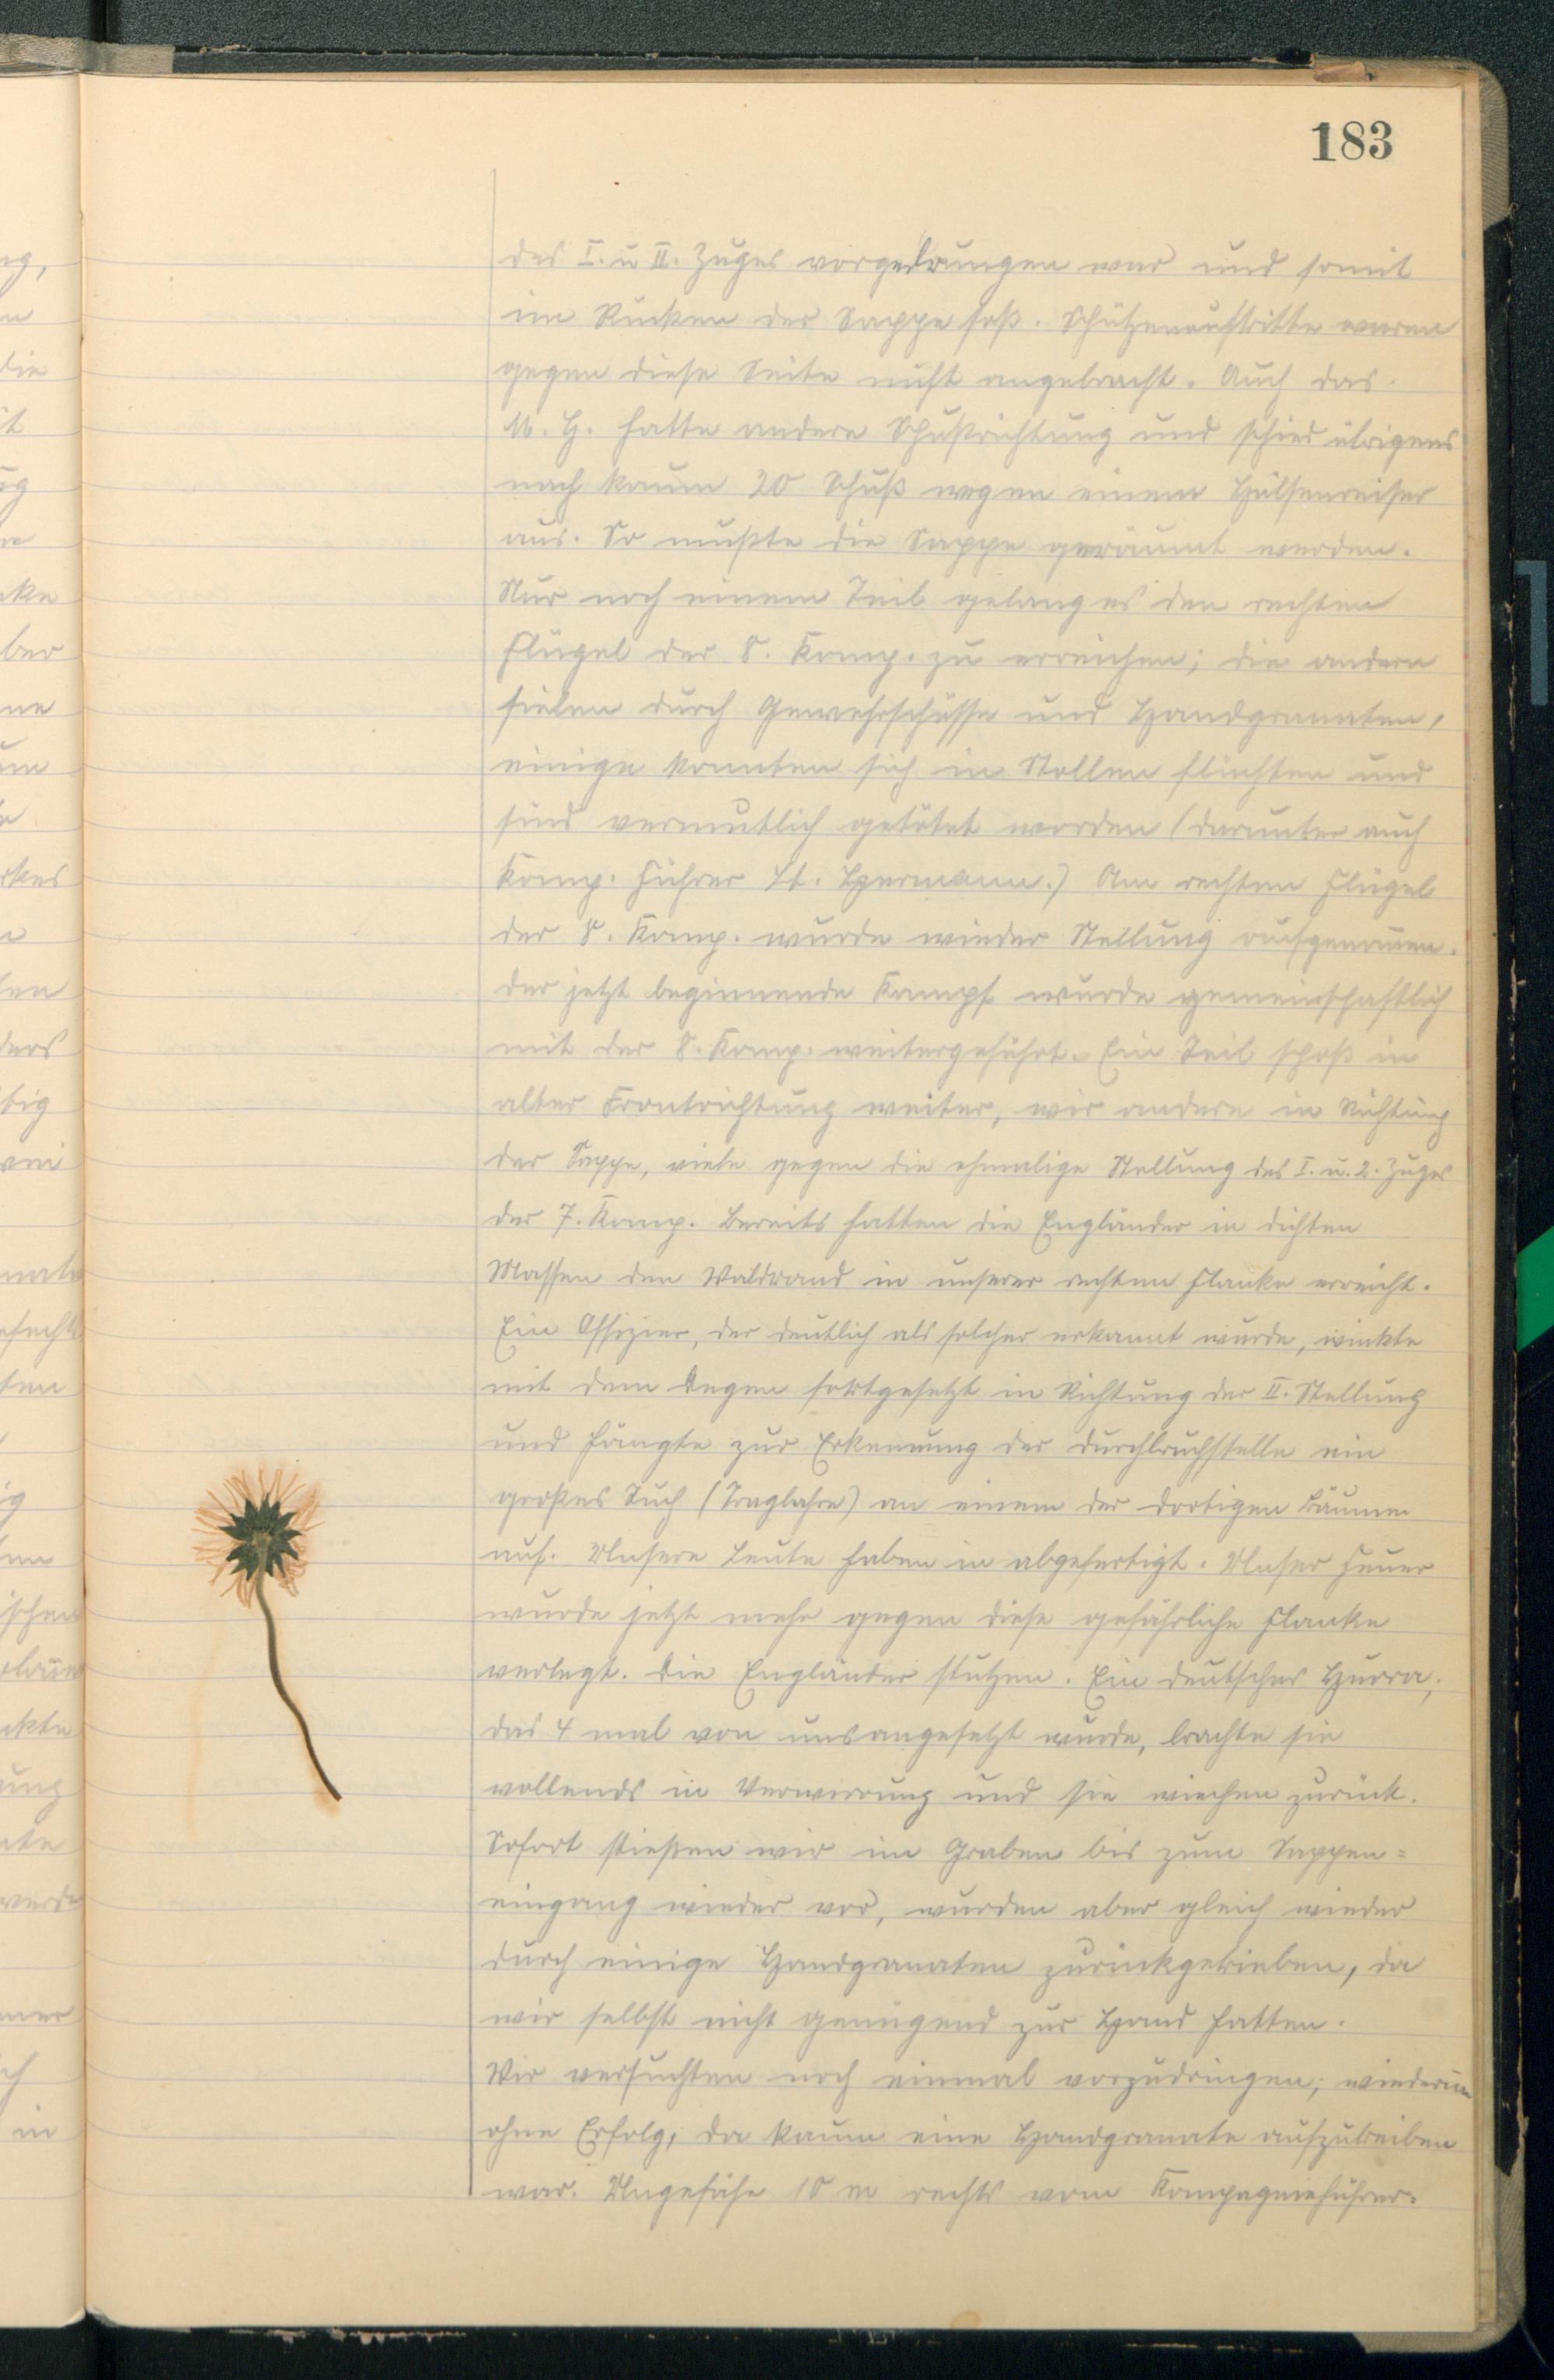 183
des I. u II. Zuges vorgedrungen war und somit
im Rücken der Sappe saß. Schützenauftritte waren
gegen diese Seite nicht angebracht. Auch das
M. G. hatte andere Schußrichtung und schied übrigens
nach kaum 20 Schuß wegen einem Hülsenreißer
aus. So mußte die Sappe geräumt werden.
Nur noch einem Teil gelang es den rechten
Flügel der 8. Komp. zu erreichen; die andern
fielen durch Gewehrschüsse und Handgranaten,
einige konnten sich in Stollen flüchten und
sind vermutlich getötet worden (darunter auch
Komp. Führer Lt. Hermann.) Am rechten Flügel
der 8. Komp. wurde wieder Stellung aufgenom̄en.
Der jetzt beginnende Kampf wurde gemeinschaftlich
mit der 8. Komp. weitergeführt. Ein Teil schoß in
alter Frontrichtung weiter, wir andere in Richtung
der Sappe, viele gegen die ehmalige Stellung des I. u. 2. Zuges
der 7. Komp. Bereits hatten die Engländer in dichten
Massen den Waldrand in unserer rechten Flanke erreicht.
Ein Offizier, der deutlich als solcher erkannt wurde, winkte
mit dem Degen fortgesetzt in Richtung der II. Stellung
und hängte zur Erkennung der Durchbruchstelle ein
großes Tuch (Tragbahre) an einem der dortigen Bäume
auf. Unsere Leute haben in abgefertigt. Unser Feuer
wurde jetzt mehr gegen diese gefährliche Flanke
verlegt. Die Engländer stutzen. Ein deutsches Hurra,
das 4 mal von uns angesetzt wurde, brachte sie
vollends in Verwirrung und sie wichen zurück.
Sofort stießen wir im Graben bis zum Sappen=
eingang wieder vor, wurden aber gleich wieder
durch einige Handgranaten zurückgetrieben, da
wir selbst nicht genügend zur Hand hatten.
Wir versuchten noch einmal vorzudringen; wiederum
ohne Erfolg, da kaum eine Handgranate aufzutreiben
war. Ungefähr 10 m rechts vom Kompagnieführer-